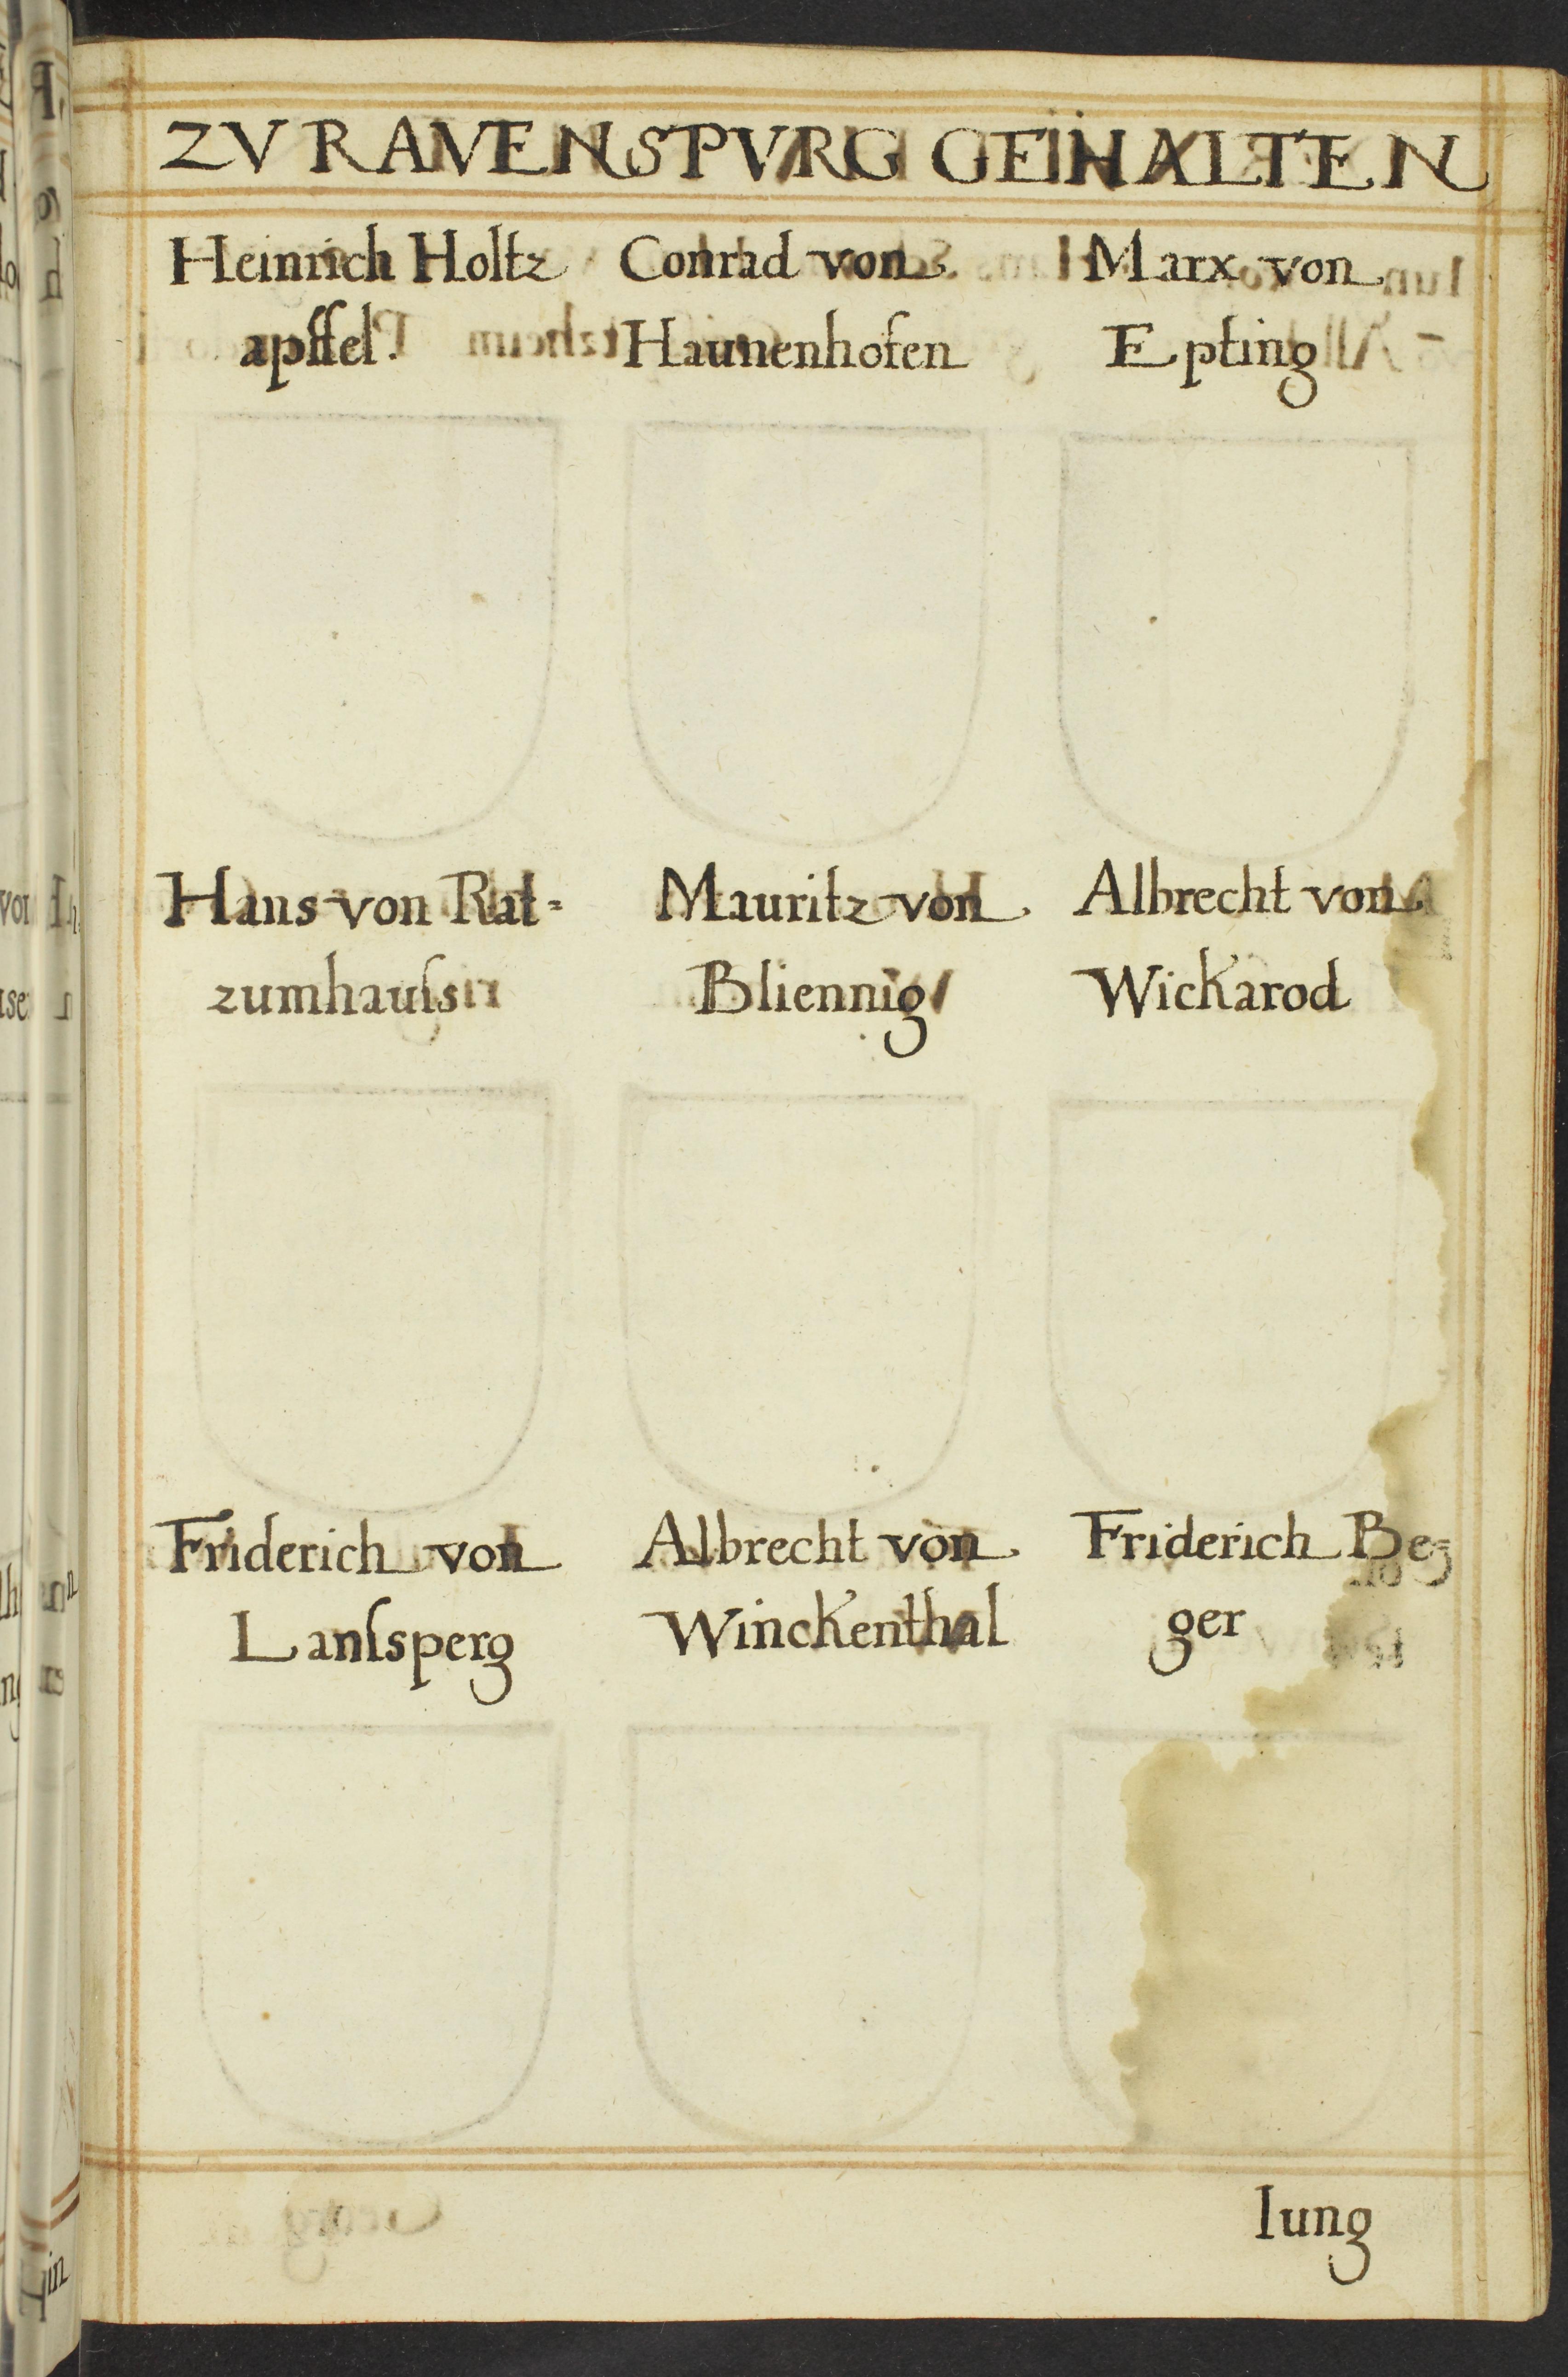 ZV RAVENSPVRG GEHALTEN
Heinrich Holtz
apffel.
Conrad von
Haunenhofen
Marx von
Epting
Hans von Rat-
zumhauſs
Mauritz von
Bliennig
Albrecht von
Wickarod
Friderich von
Lanſsperg
Albrecht von
Winckenthal
Friderich Be-
ger
Iung